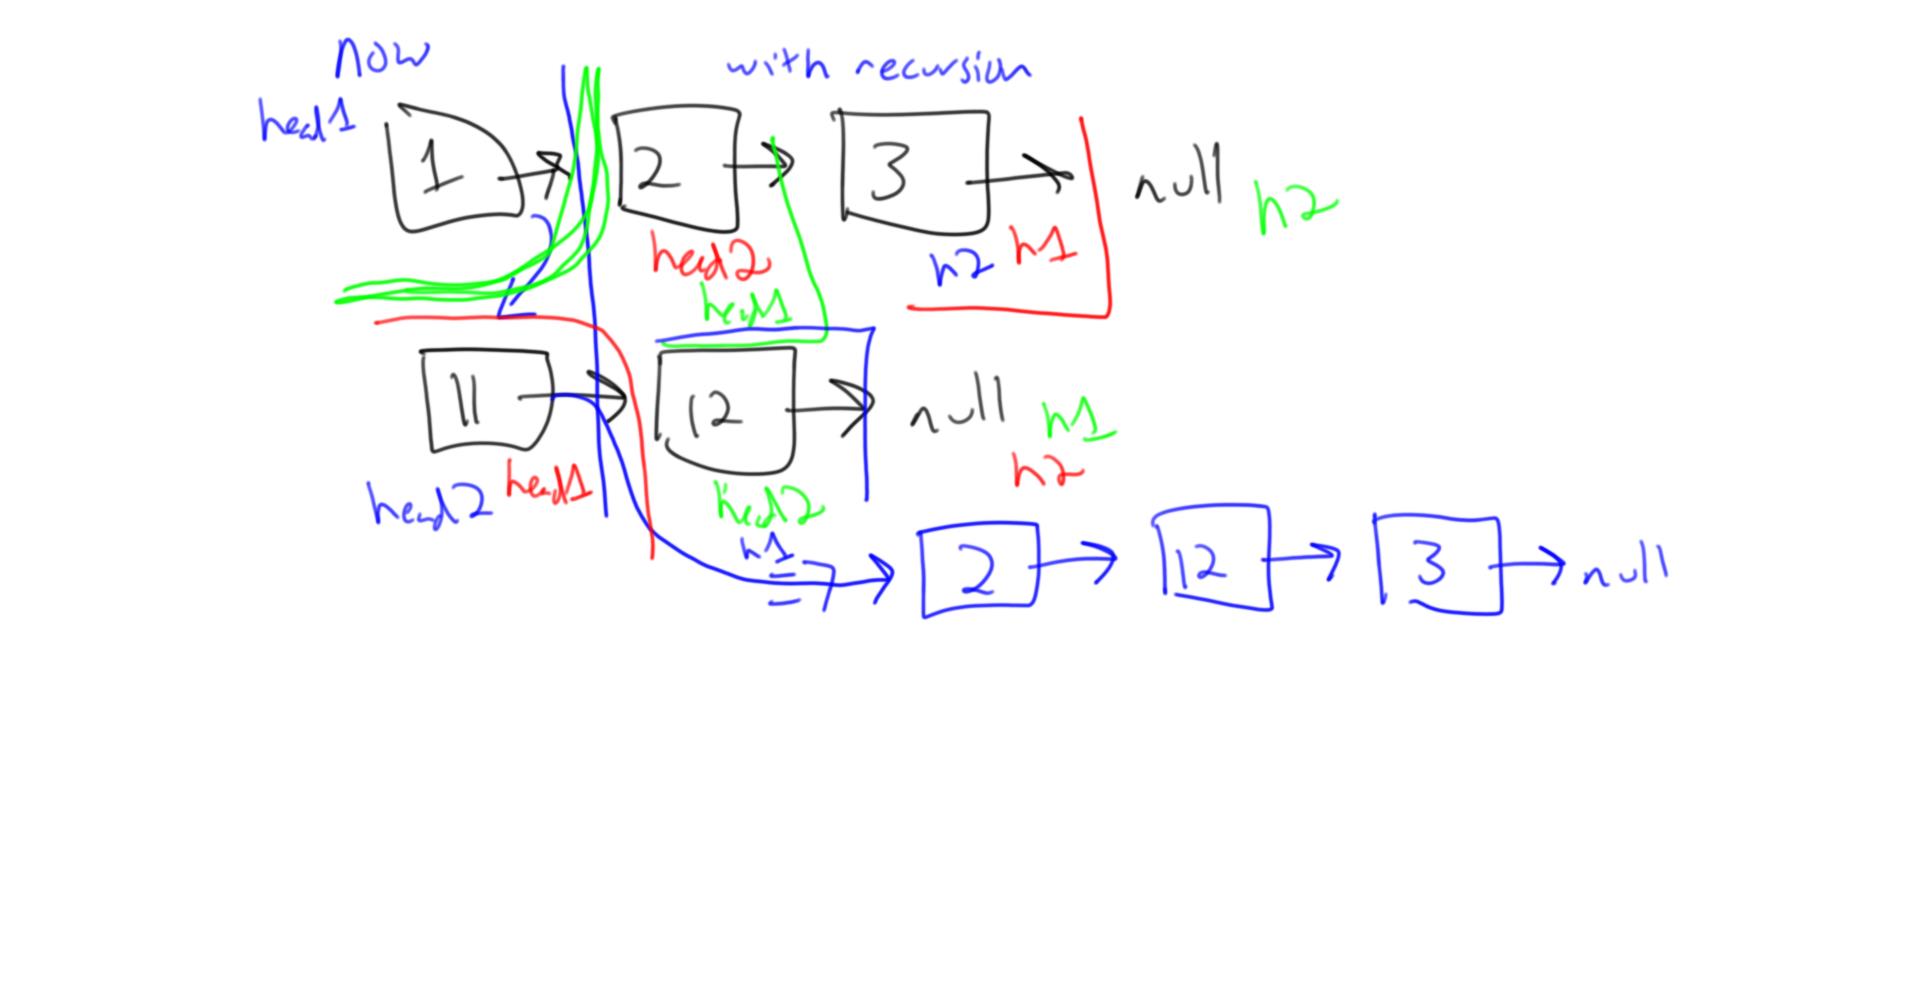 now
with recursion
head1
1
2
3
null
h2
2
head2
h2
h1
head1
11
12
null
h1
h2
head2
head1
head2
h1
2
12
3
null